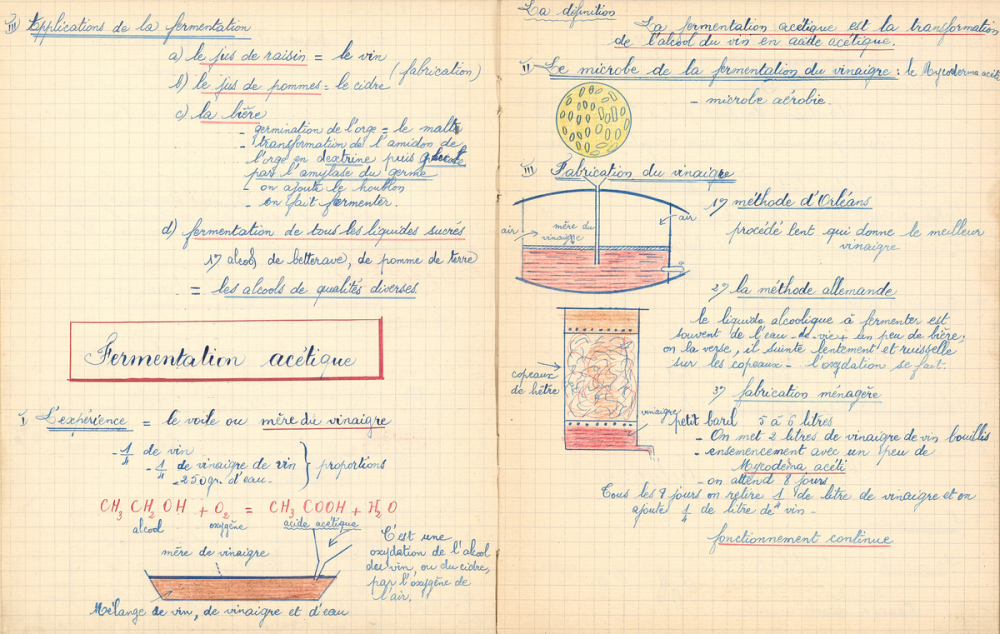 III Applications de la fermentation
a) le jus de raisin = le vin
(fabrication)
b) le jus de pommes = le cidre
c) la bière
- germination de l'orge = le malt
- transformation de l'amidon de
l'orge en dextrine puis glucose
par l'amylase du germe
- on ajoute le houblon
- on fait fermenter.
d) fermentation de tous les liquides sucrés
1°) alcool de betterave, de pomme de terre
= les alcools de qualités diverses
Fermentation acétique
I L'expérience = le voile ou mère du vinaigre
- 1/4 de vin
- 1/4 de vinaigre de vin } proportions
- 250gr. d'eau
CH3 CH2 OH + O2 = CH3 COOH + H2O
alcool oxygène acide acétique
mère de vinaigre
C'est une
oxydation de l'alcool
du vin, ou du cidre,
par l'oxygène de
l'air.
Mélange de vin, de vinaigre et d'eau
La définition
La fermentation acétique est la transformation
de l'alcool du vin en acide acétique.
II Le microbe de la fermentation du vinaigre : le Mycoderma acéti
- microbe aérobie
III Fabrication du vinaigre
1°) méthode d'Orléans
procédé lent qui donne le meilleur
vinaigre
air
mère du
vinaigre
air
2°) la méthode allemande
le liquide alcoolique à fermenter est
souvent de l'eau-de-vie + un peu de bière;
on la verse, il suinte lentement et ruisselle
sur les copeaux - l'oxydation se fait.
copeaux
de hêtre
vinaigre
3°) fabrication ménagère
petit baril 5 à 6 litres
- On met 2 litres de vinaigre de vin bouillis
- ensemencement avec un peu de
Mycodema acéti
- on attend 8 jours
Tous les 8 jours on retire 1/4 de litre de vinaigre et on
ajoute 1/4 de litre de vin -
fonctionnement continue